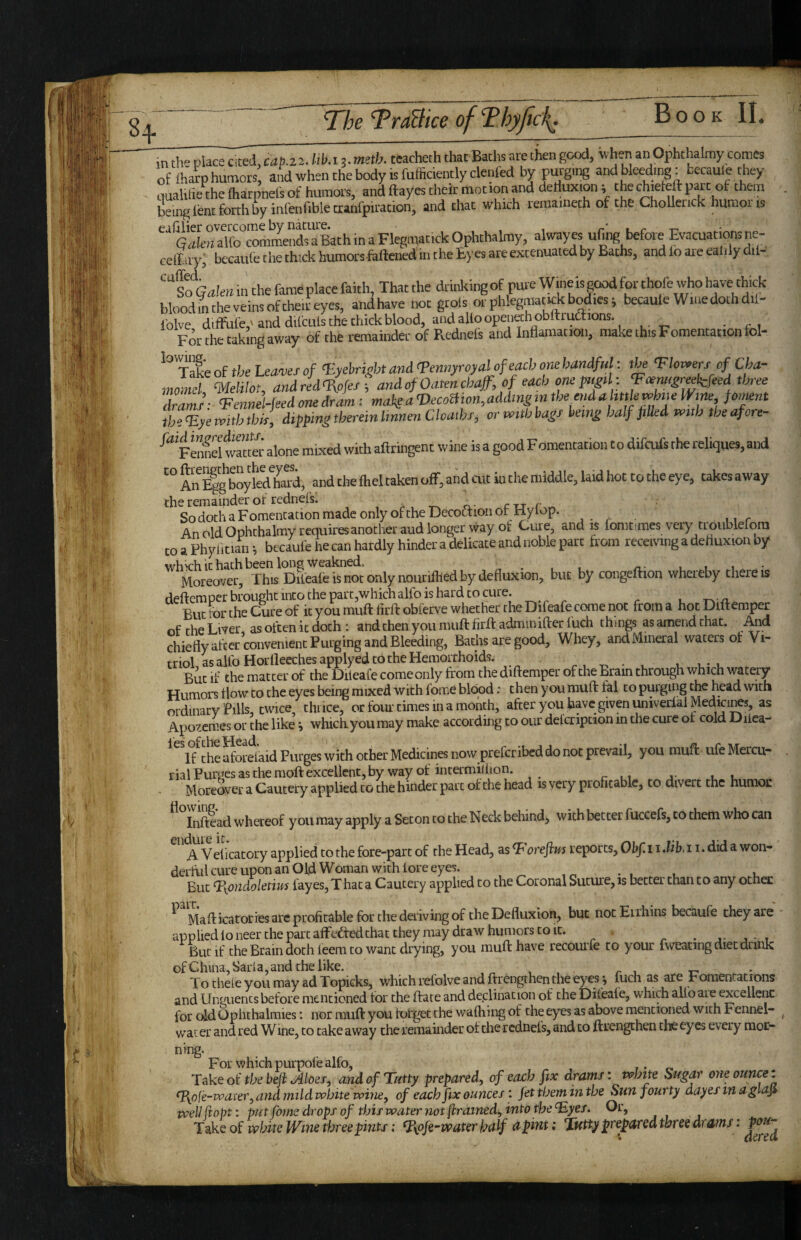 84 The Practice of Physick. Book II.
in the place cited, cap.22. lib.13. meth. teacheth that Baths are then good, when an Ophthalmy comes
of sharp humors, and when the body is sufficiently clensed by purging and bleeding: because they
qualifie the sharpness of humors, and stayes their motion and defluxion; the chiefest part of them
being sent forth by insensible transpiration, and that which remaineth of the Chollerick humor is
easilier overcome by nature.
Galen also commends a Bath in a Flegmatick Ophthalmy, alwayes using before Evacuations ne-
cessary, because the thick humors fastened in the Eyes are extenuated by Baths, and so are easily dis-
cussed.
So Galen in the same place saith, That the drinking of pure Wine is good for those who have thick
blood in the veins of their eyes, and have not gross or phlegmatick bodies; because Wine doth dis-
solve, diffuse, and discuss the thick blood, and also openeth obstructions.
For the taking away of the remainder of Redness and Inflamation, make this Fomentation fol-
lowing.
Take of the Leaves of Eyebright and Pennyroyal of each one handful: the Flowers of Cha-
momel, Melilot, and red Roses; and of Oaten chaff, of each one pugil: Foenugreek-seed three
drams: Fennel-seed one dram: make a Decoction, adding in the end a little white Wine, foment
the Eye with this, dipping therein linnen Cloaths, or with bags being half filled with the afore-
said ingredients.
Fennel watter alone mixed with astringent wine is a good Fomentation to discuss the reliques, and
to strengthen the eyes.
An Egg boyled hard, and the shel taken off, and cut in the middle, laid hot to the eye, takes away
the remainder of redness.
So doth a Fomentation made only of the Decoction of Hysop.
An old Ophthalmy requires another and longer way of Cure, and is somtimes very troublesom
to a Physitian; because he can hardly hinder a delicate and noble part from receiving a defluxion by
which it hath been long weakned.
Moreover, This Disease is not only nourished by defluxion, but by congestion whereby there is
destemper brought into the part, which also is hard to cure.
But for the Cure of it you must first observe whether the Disease come not from a hot Distemper
of the Liver, as often it doth: and then you must first administer such things as amend that. And
chiefly after convenient Purging and Bleeding, Baths are good, Whey, and Mineral waters of Vi-
triol, as also Horsleeches applyed to the Hemorrhoids.
But if the matter of the Disease come only from the distemper of the Brain through which watery
Humors flow to the eyes being mixed with some blood: then you must fal to purging the head with
ordinary Pills, twice, thrice, or four times in a month, after you have given universal Medicines, as
Apozemes or the like; which you may make according to our description in the cure of cold Disea-
ses of the Head.
If the aforesaid Purges with other Medicines now prescribed do not prevail, you must use Mercu-
rial Purges as the most excellent, by way of intermission.
Moreover a Cautery applied to the hinder part of the head is very profitable, to divert the humor
flowing.
Instead whereof you may apply a Seton to the Neck behind, with better success, to them who can
endure it.
A Vesicatory applied to the fore-part of the Head, as Forestus reports, Obs. 11. lib. 11. did a won-
derful cure upon an Old Woman with sore eyes.
But Rondoletius sayes, That a Cautery applied to the Coronal Suture, is better than to any other
part.
Masticatories are profitable for the deriving of the Defluxion, but not Errhins because they are
applied so neer the part affected that they may draw humors to it.
But if the Brain doth seem to want drying, you must have recourse to your sweating diet drink
of China, Sarsa, and the like.
To these you may ad Topicks, which resolve and strengthen the eyes; such as are Fomentations
and Unguents before mentioned for the state and declination of the Disease, which also are excellent
for old Ophthalmies: nor must you forget the washing of the eyes as above mentioned with Fennel-
water and red Wine, to take away the remainder of the redness, and to strengthen the eyes every mor-
ning.
For which purpose also,
Take of the best Aloes, and of Tutty prepared, of each six drams: white Sugar one ounce:
Rose-water, and mild white wine, of each six ounces: set them in the Sun fourty dayes in a glass
well stopt: put some drops of this water not strained, into the Eyes. Or,
Take of white Wine three pints: Rose-water half a pint: Tutty prepared three drams: pou-
dered